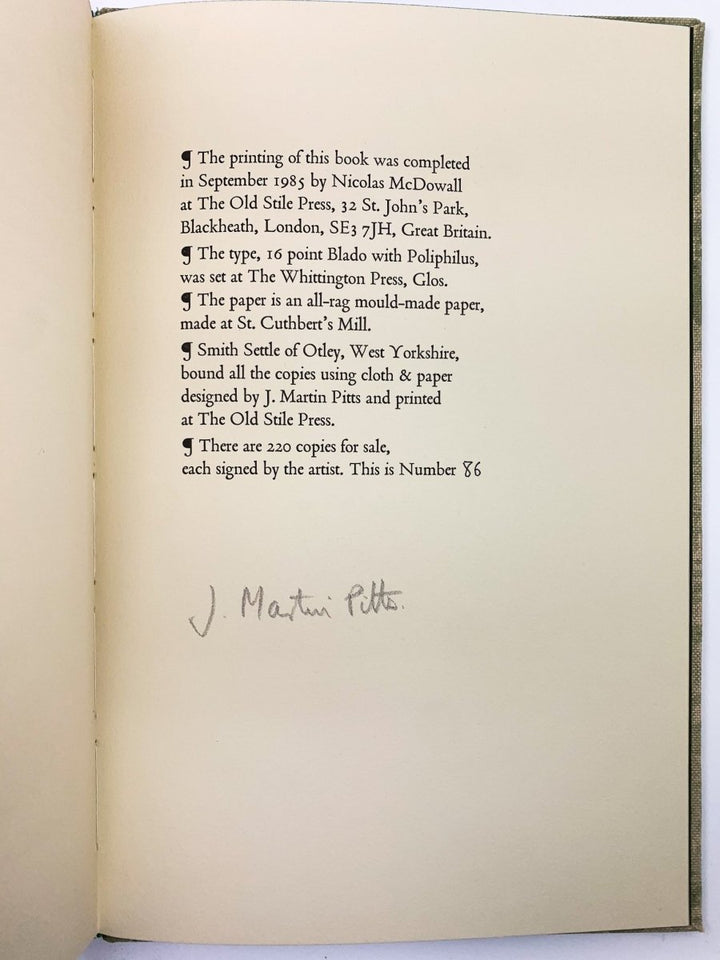 ¶ The printing of this book was completed
in September 1985 by Nicolas McDowall
at The Old Stile Press, 32 St. John's Park,
Blackheath, London, SE3 7JH, Great Britain.
¶ The type, 16 point Blado with Poliphilus,
was set at The Whittington Press, Glos.
¶ The paper is an all-rag mould-made paper,
made at St. Cuthbert's Mill.
¶ Smith Settle of Otley, West Yorkshire,
bound all the copies using cloth & paper
designed by J. Martin Pitts and printed
at The Old Stile Press.
¶ There are 220 copies for sale,
each signed by the artist. This is Number 86
J. Martin Pitts.